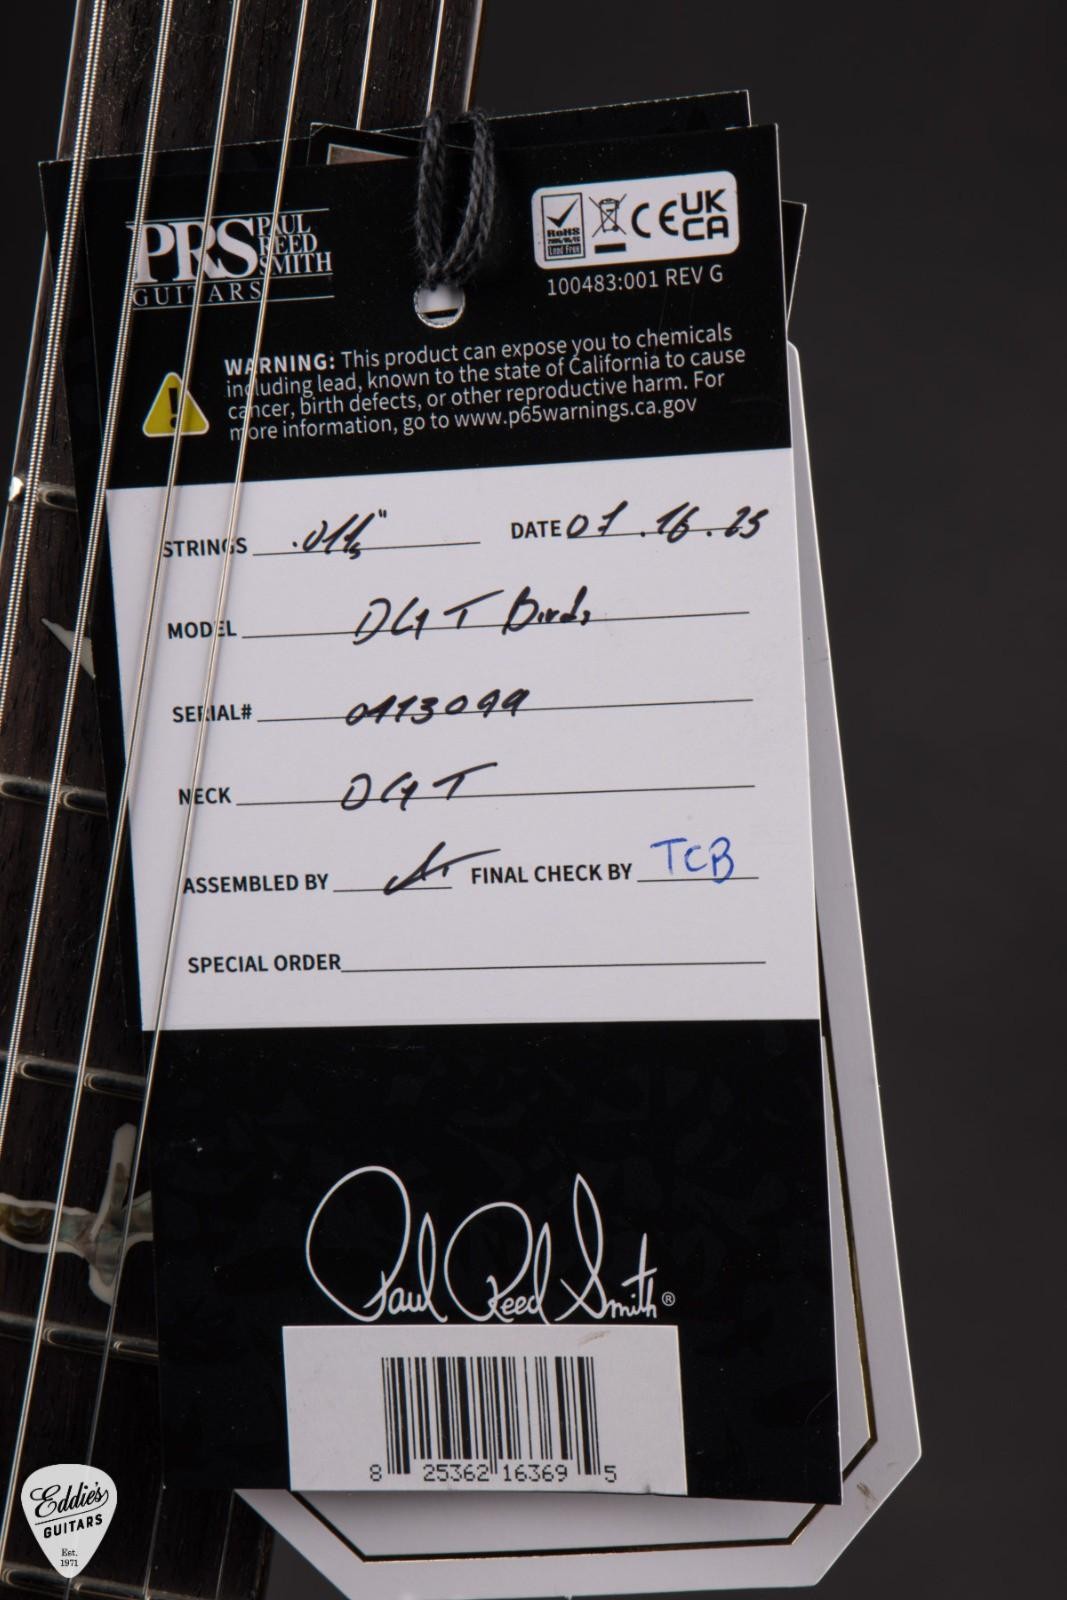 PRS PAUL REED SMITH
GUITARS
RoHS
2015/863/EU
Lead Free
CE UK CA
100483:001 REV G
WARNING: This product can expose you to chemicals
including lead, known to the state of California to cause
cancer, birth defects, or other reproductive harm. For
more information, go to www.p65warnings.ca.gov
STRINGS .011s" DATE 07.16.25
MODEL DGT Birds
SERIAL# 0413099
NECK DGT
ASSEMBLED BY FINAL CHECK BY TCB
SPECIAL ORDER
Paul Reed Smith®
8 25362 16369 5
Eddie's
GUITARS
Est.
1971